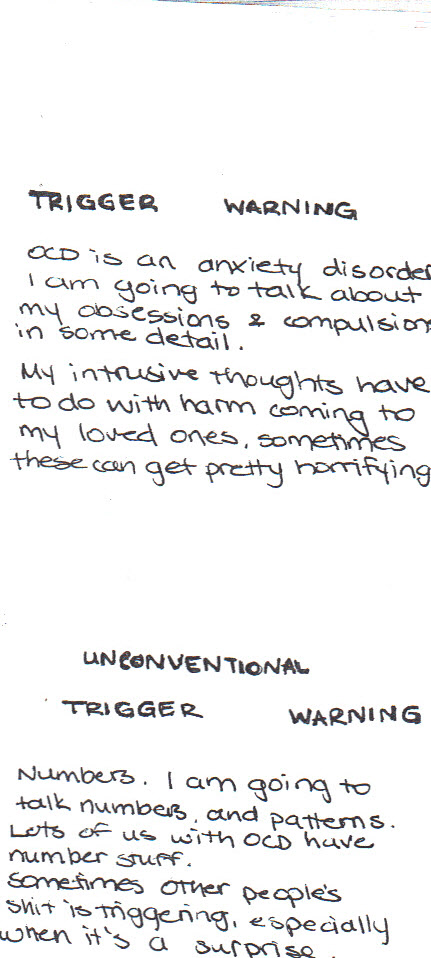 TRIGGER WARNING
OCD is an anxiety disorder
I am going to talk about
my obsessions & compulsion
in some detail.
My intrusive thoughts have
to do with harm coming to
my loved ones, sometimes
these can get pretty horrifying
UNCONVENTIONAL
TRIGGER WARNING
Numbers. I am going to
talk numbers, and patterns.
Lots of us with OCD have
number stuff.
Sometimes other people's
shit is triggering, especially
when it's a surprise.